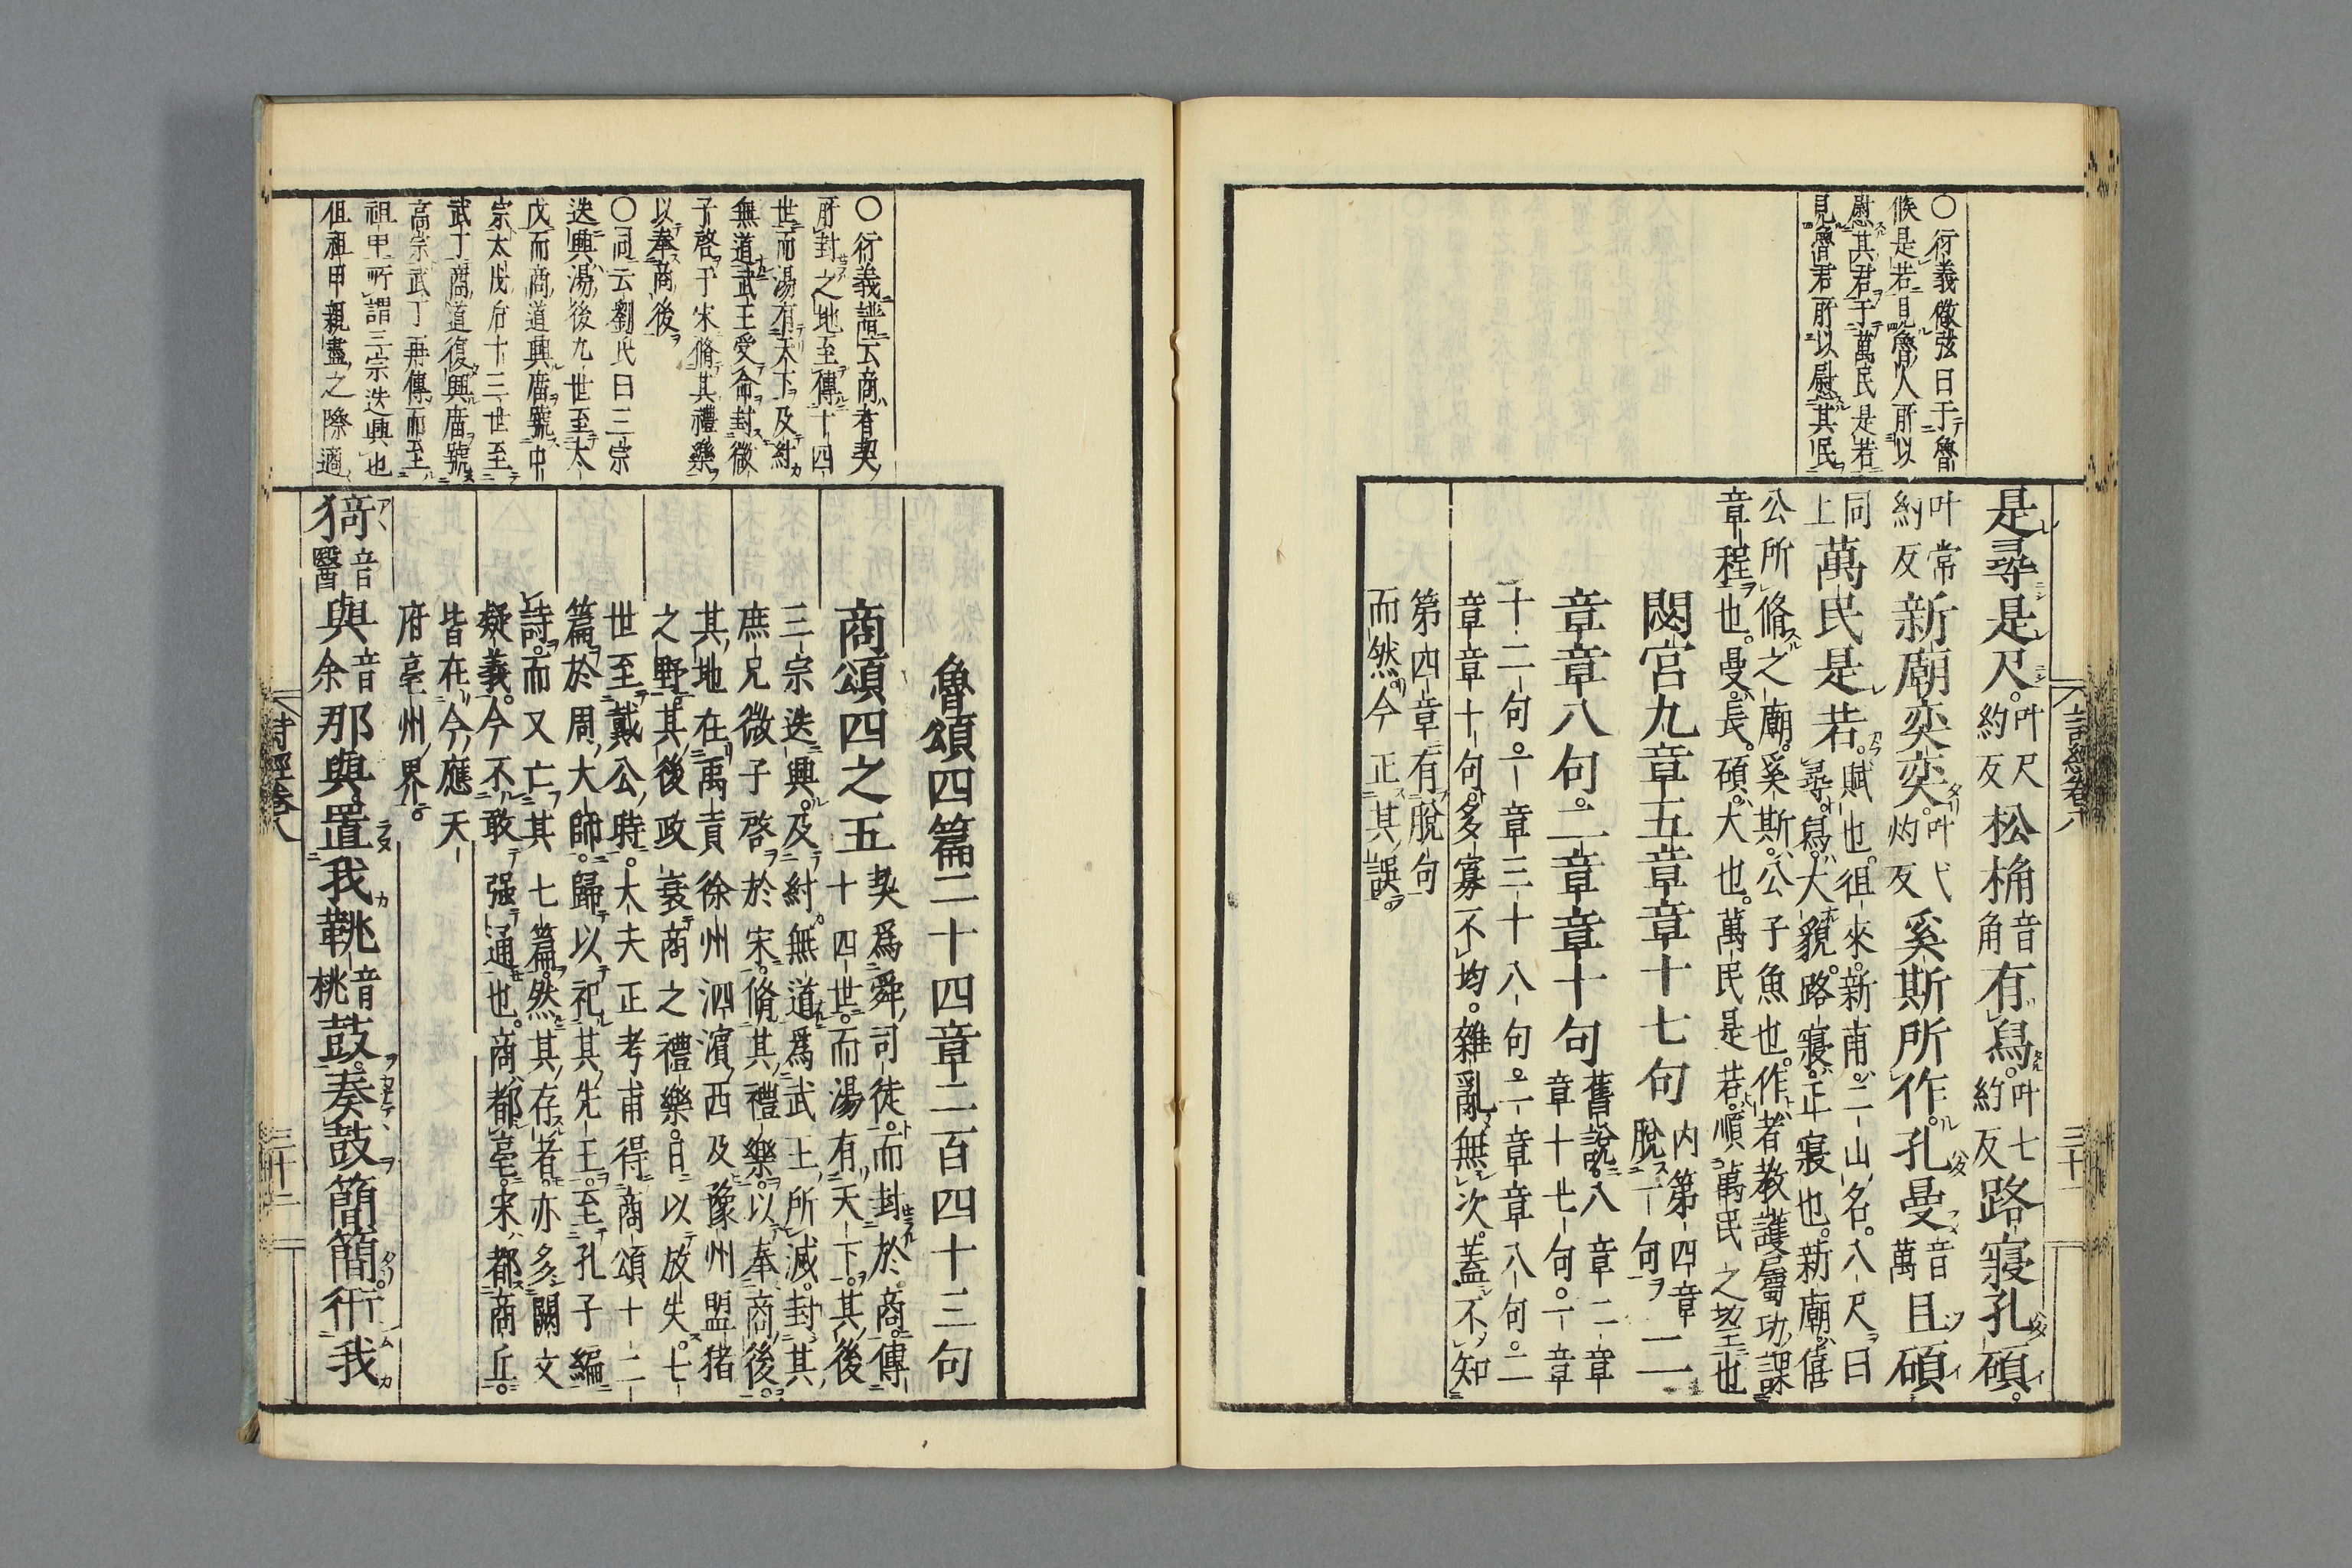 詩經卷八 三十一
○衍義儆弦曰于魯
候是若見魯人所以
慰其君于萬民是若
見魯君所以慰其民
是尋是尺。叶尺約反松桷音角有舃。叶七約反路寢孔碩。
叶常約反新廟奕奕。叶弋灼反奚斯所作。孔曼音萬且碩
同上萬民是若。賦也。徂來。新甫。二山名。八尺曰
尋。舃。大貌。路寢。正寢也。新廟。僖
公所脩之廟。奚斯。公子魚也。作者教護屬功課
章程也。曼。長。碩。大也。萬民是若。順萬民之望也
閟宮九章五章章十七句内第四章脫一句二
章章八句。二章章十句舊說。八章二章章十七句。一章
十二句。一章三十八句。二章章八句。二
章章十句。多寡不均。雜亂無次。蓋不知
第四章有脫句
而然。今正其誤。
○衍義證云商者契
所封之地至傳十四
世而湯有天下及紂
無道武王受命封微
子啓于宋脩其禮樂
以奉商後
○同云劉氏曰三宗
迭興湯後九世至太
戊而商道興廟號中
宗太戊后十三世至
武丁商道復興廟號
高宗武丁再傳而至
祖甲所謂三宗迭興也
但祖甲親盡之際適
魯頌四篇二十四章二百四十三句
商頌四之五契爲舜司徒。而封於商。傳
十四世。而湯有天下。其後
三宗迭興。及紂無道爲武王所滅。封其
庶兄微子啓於宋。脩其禮樂。以奉商後。
其地在禹貢徐州泗濱西及豫州盟猪
之野。其後政衰商之禮樂。日以放失。七
世至戴公時。大夫正考甫得商頌十二
篇於周大師。歸以祀其先王。至孔子編
詩。而又亡其七篇。然其存者。亦多闕文
疑義。今不敢强通也。商都亳。宋都商丘。
皆在今應天
府亳州界。
猗音醫與音余那與置我鞉音桃鼓。奏鼓簡簡。衎我
詩經卷八 三十二